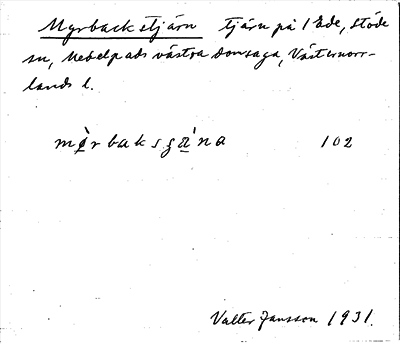 Myrbackstjärn tjärn på 1 Ede, Stöde
sn, Medelpads västra domsaga, Västernorr-
lands l.
102
Valter Jansson 1931.